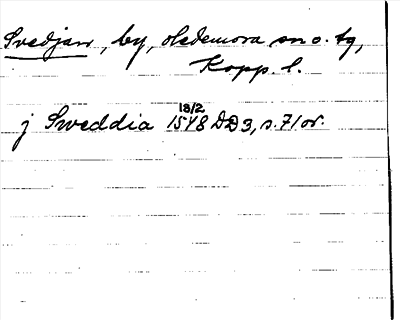 Svedjan, by, Hedemora sn o. tg,
Kopp. l.
18/2
j Sweddia 1548 DD3, s. 71 or.